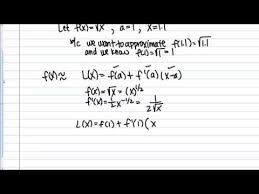 Let f(x) = √x , a = 1 , x = 1.1
b/c we want to approximate f(1.1) = √1.1
and we know f(1) = √1 = 1
f(x) ≈ L(x) = f(a) + f'(a) (x-a)
f(x) = √x = (x)^1/2
f'(x) = 1/2 x^-1/2 = 1/2√x
L(x) = f(1) + f'(1) (x